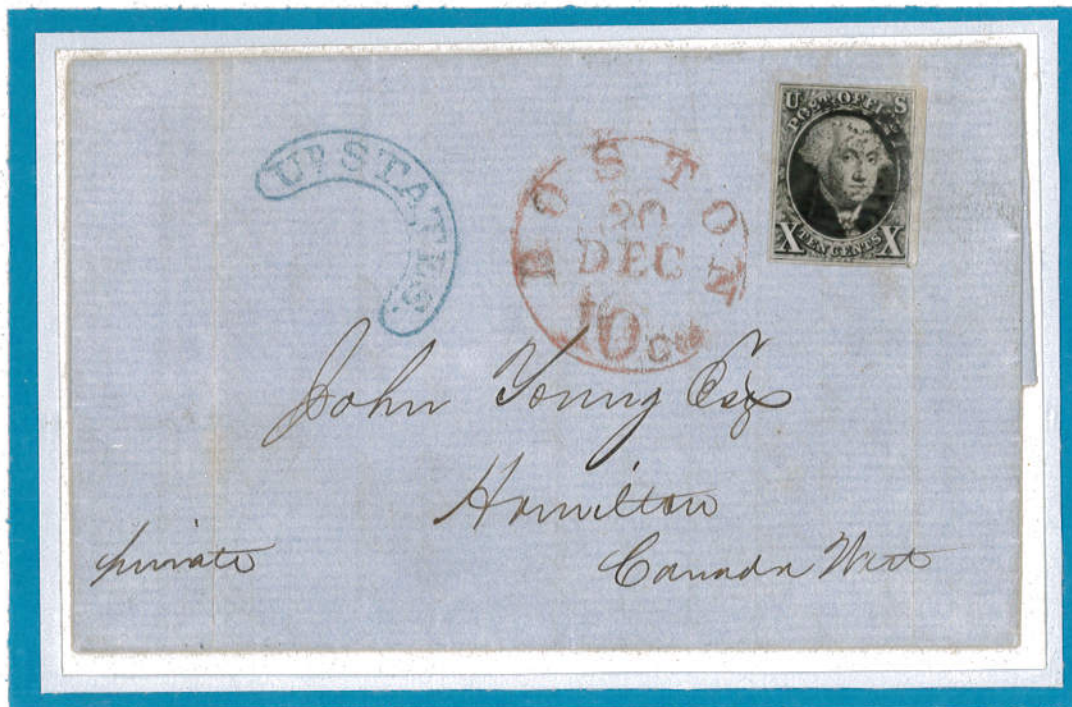 UD STATES.
BOSTON
20
DEC
10 cts
U S
POST OFFICE
X TEN CENTS X
John Young Esq
Hamilton
Canada West
private